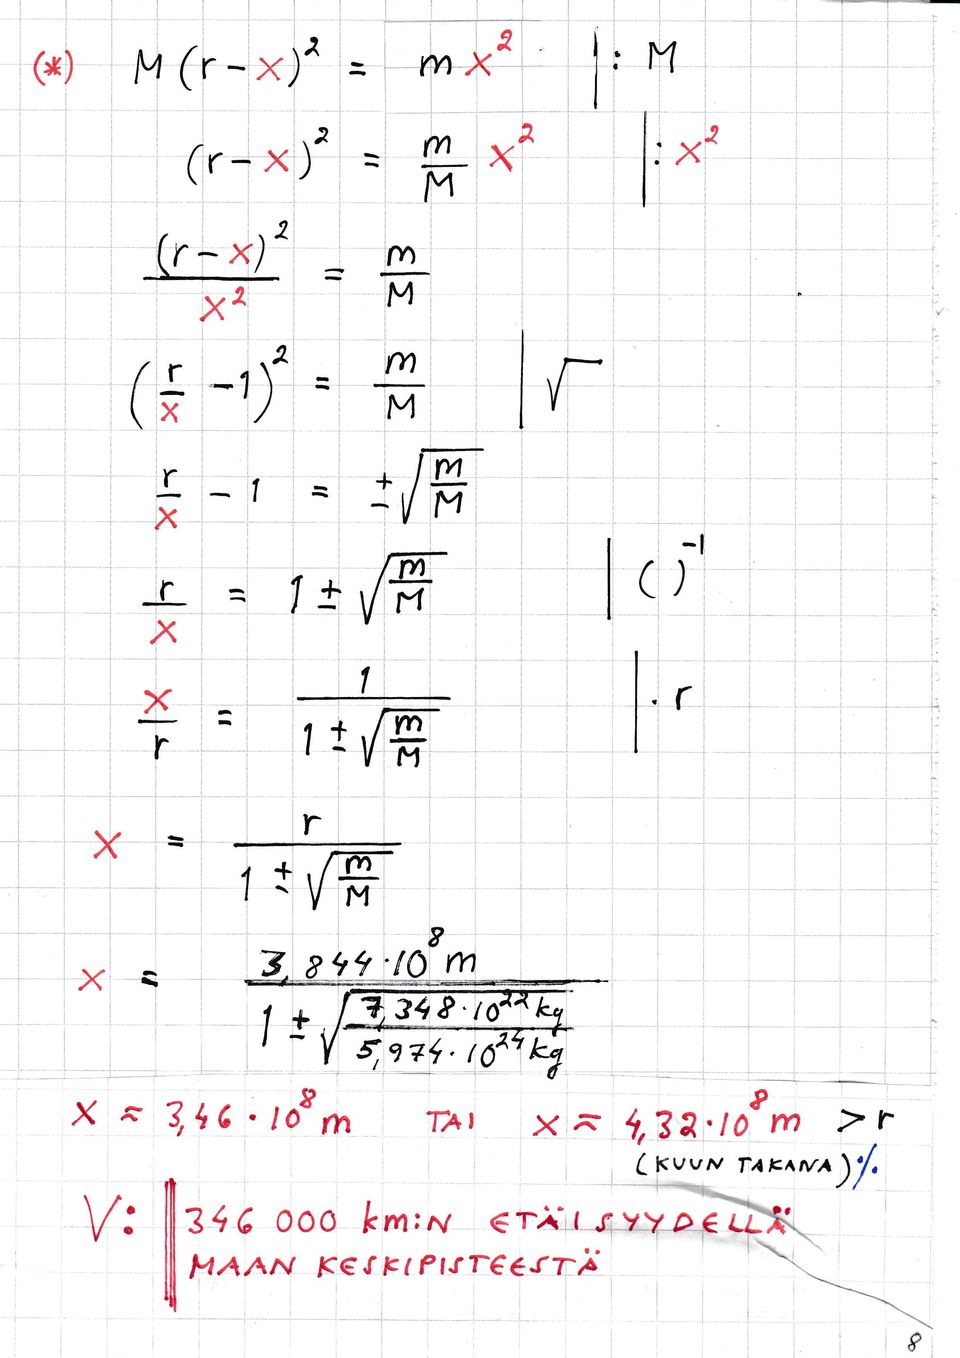 (*) M(r-x)² = mx² |: M
(r-x)² = m/M x² |: x²
(r-x)²/x² = m/M
(r/x -1)² = m/M | √
r/x - 1 = ±√(m/M)
r/x = 1 ± √(m/M) | ( )⁻¹
x/r = 1/(1 ± √(m/M)) | · r
x = r/(1 ± √(m/M))
x = 3,844·10⁸ m/(1 ± √(7,348·10²² kg/5,974·10²⁴ kg))
x ≈ 3,46·10⁸ m TAI x ≈ 4,32·10⁸ m > r
(KUUN TAKANA) %
V: 346 000 km:N ETÄISYYDELLÄ
MAAN KESKIPISTEESTÄ
8